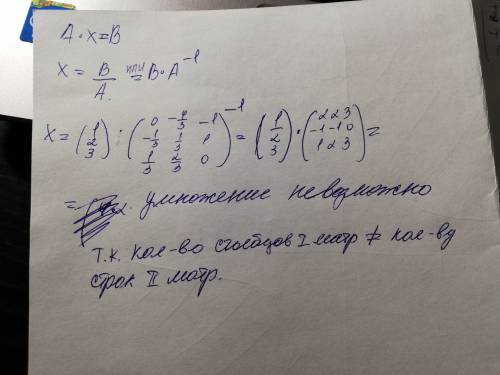 A·X=B
X = B/A или = B·A⁻¹
X = (1 2 3) · (0 -1/3 -1; -1/3 1/3 1; 1/3 2/3 0)⁻¹ = (1 2 3) · (2 2 3; -1 -1 0; 1 2 3) =
= умножение невозможно
т.к. кол-во столбцов I матр ≠ кол-ву
строк II матр.